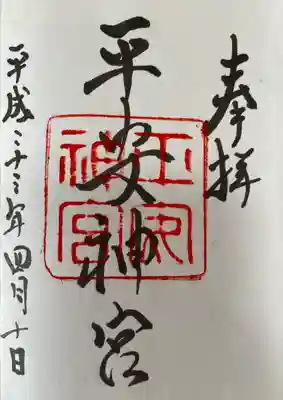 奉拝
平安神宮
平安神宮
平成二十三年四月十日